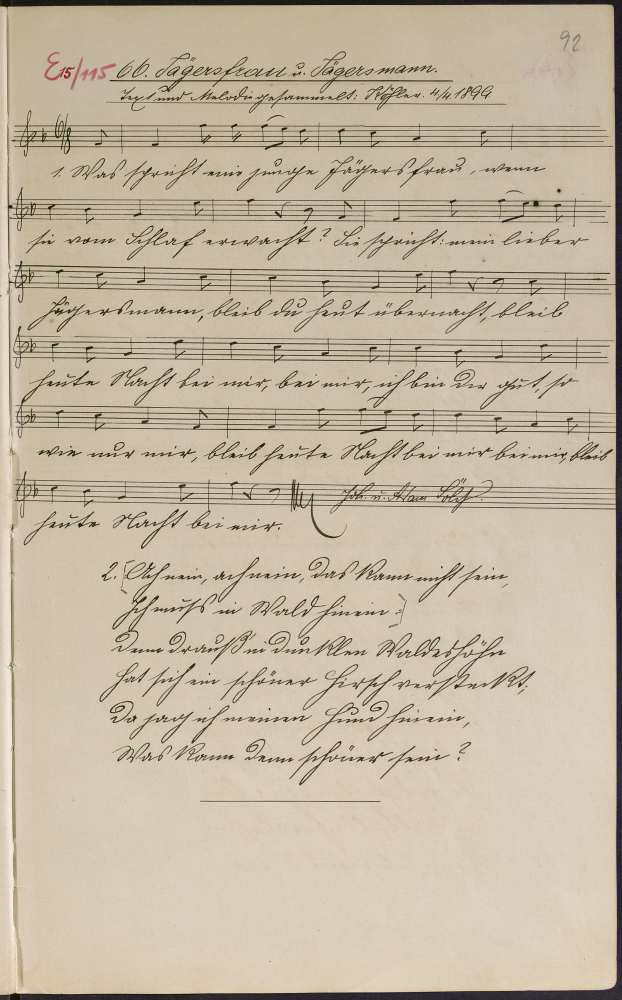 92
E 15/115 66. Jägersfrau u. Jägersmann.
Text und Melodie gesammelt: Köhler. 4/4 1899
6/8
1. Was spricht eine junge Jägersfrau, wenn
sie vom Schlaf erwacht? Sie spricht: mein lieber
Jägersmann, bleib du heut übernacht, bleib
heute Nacht bei mir, bei mir, ich bin dir gut, so
wie nur mir, bleib heute Nacht bei mir bei mir, bleib
heute Nacht bei mir.
Joh. u. Adam
2. [Ach nein, ach nein, das kann nicht sein,
Ich muß in Wald hinein :]
Denn drauß in dunklen Waldeshöhn
hat sich ein schöner Hirsch versteckt;
Da jag ich meinen Hund hinein,
Was kann denn schöner sein?